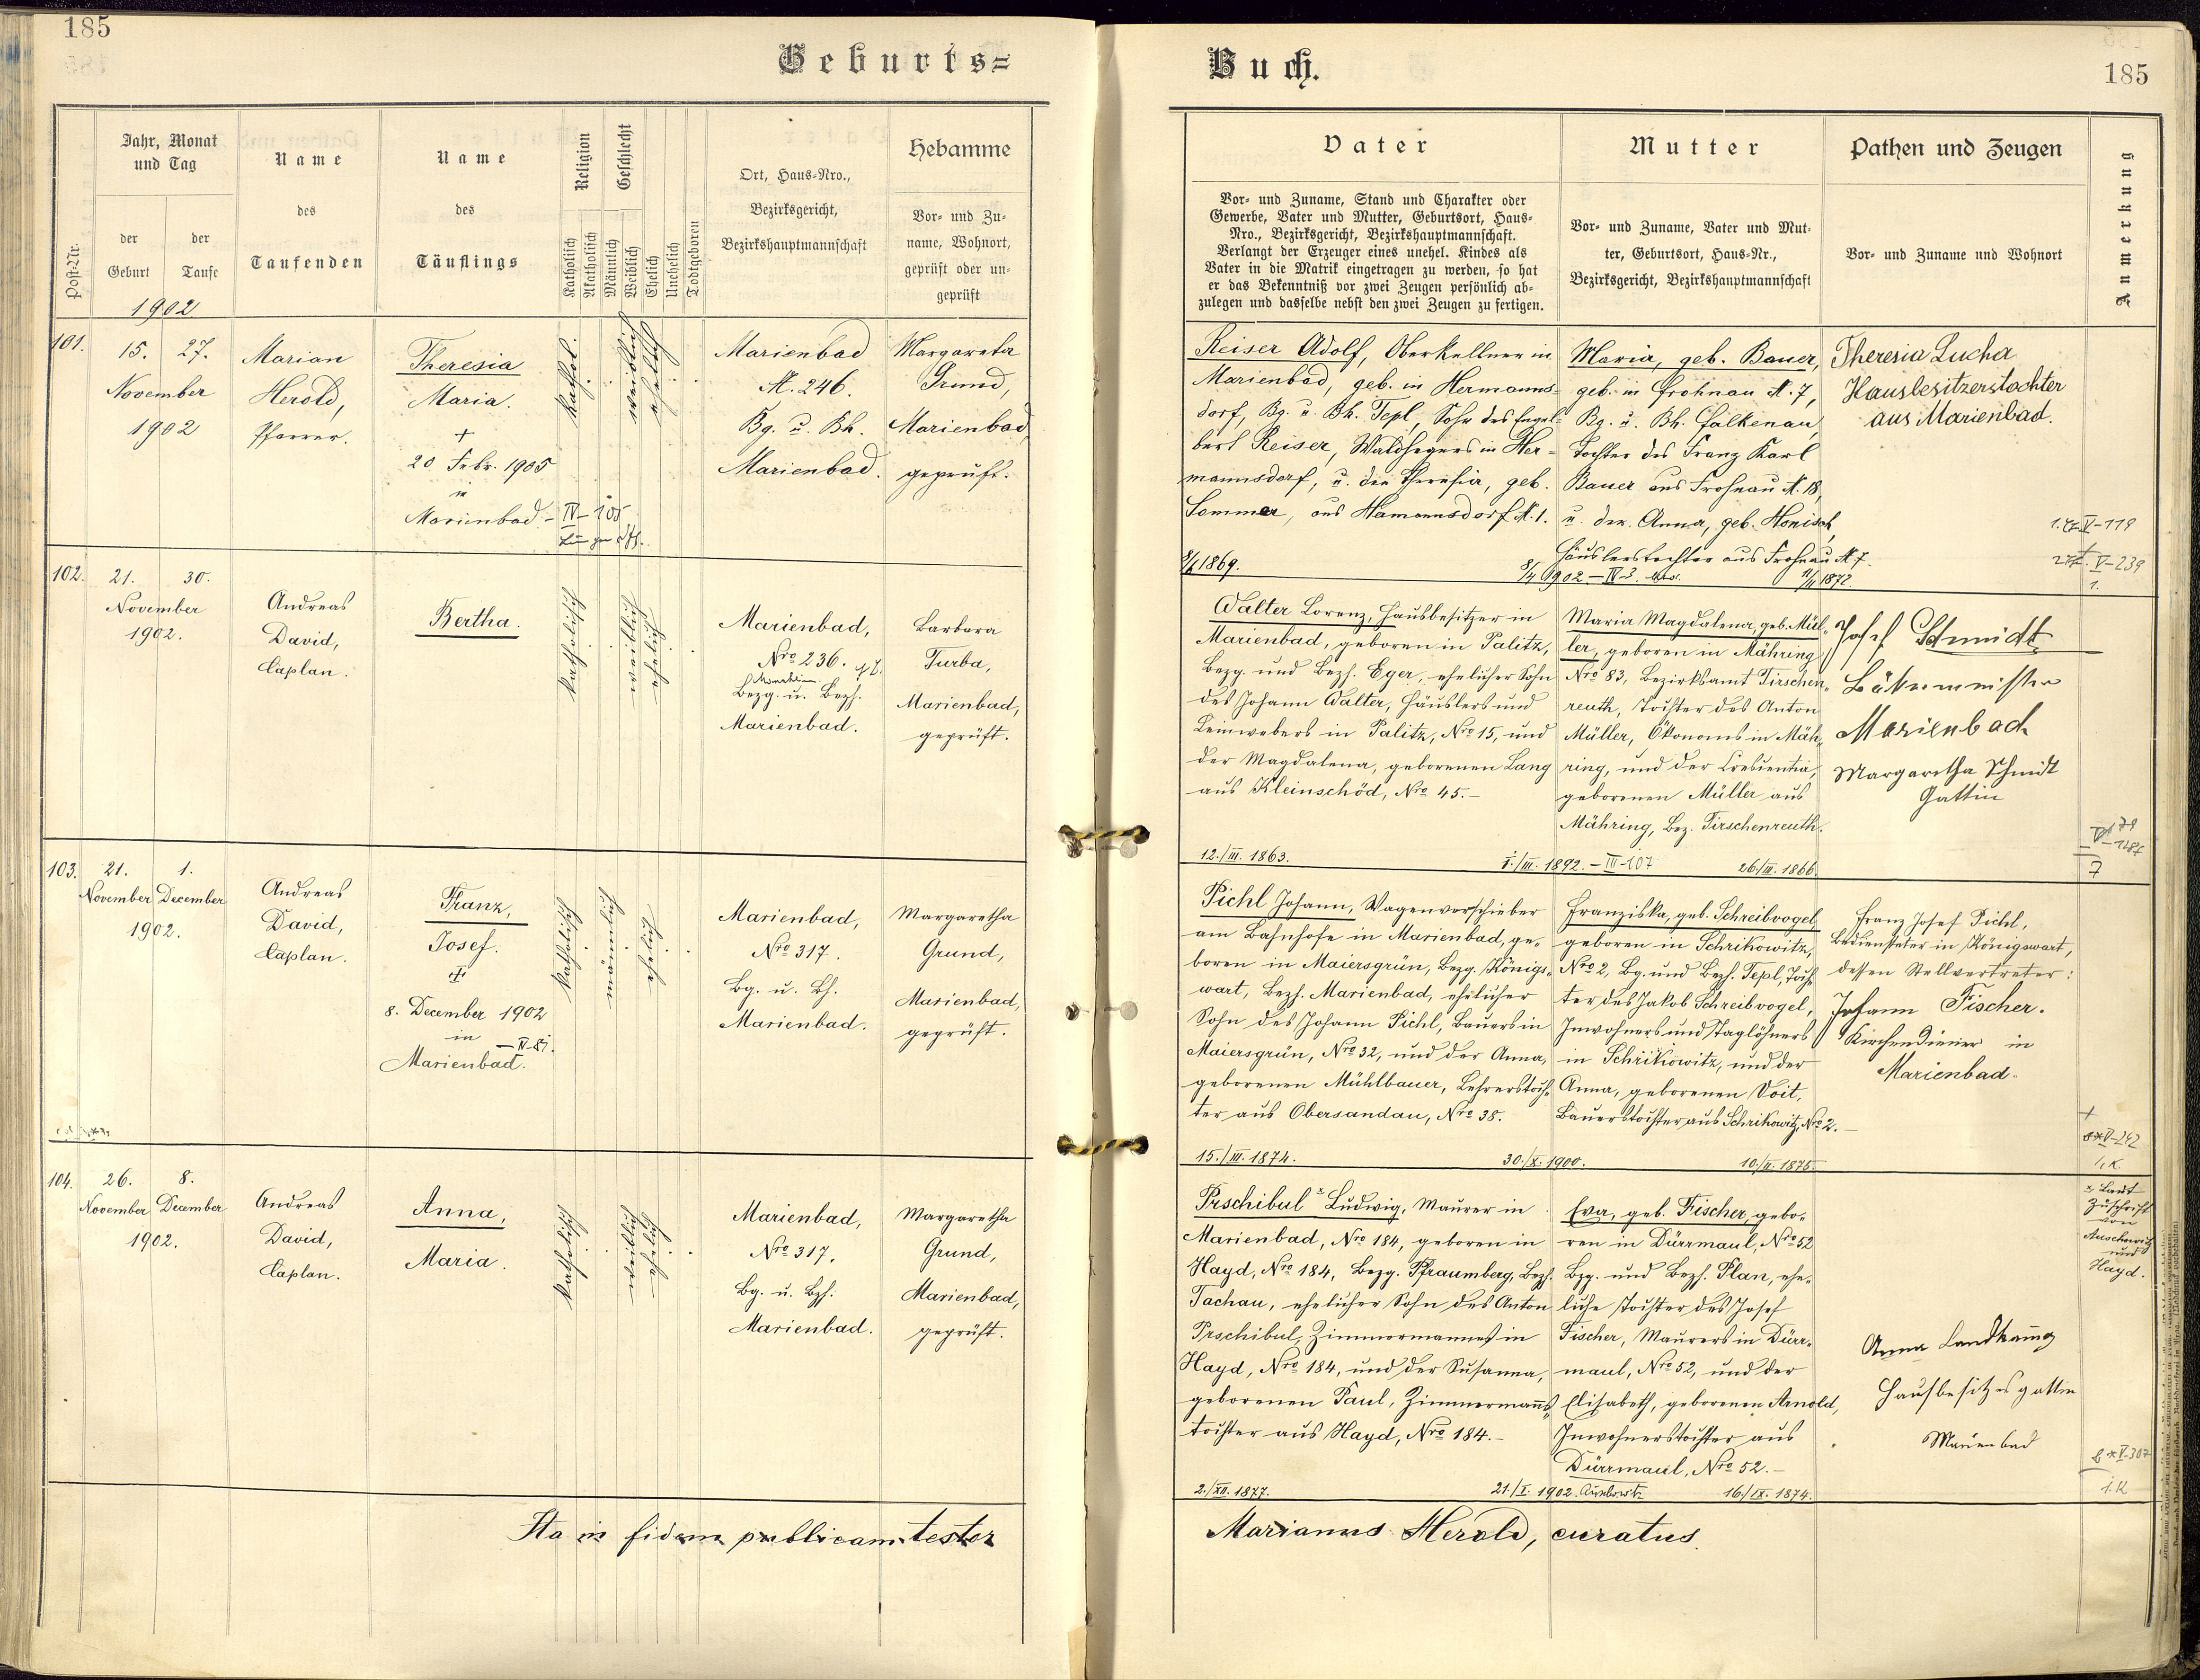 185
Geburts=
Jahr, Monat
und Tag
Name
Name
Religion
Geschlecht
Hebamme
Ort, Haus-Nro.,
des
des
Bezirksgericht,
Vor- und Zu-
Post-Nr.
der
der
Bezirkshauptmannschaft
name, Wohnort,
Geburt
Taufe
Taufenden
Täuflings
Katholisch
Akatholisch
Männlich
Weiblich
Ehelich
Unehelich
Todtgeboren
geprüft oder un-
geprüft
1902
101.
15. 27.
November
1902
Marian
Herold,
Pfarrer.
Theresia
Maria.
+
20 Febr. 1905
in
Marienbad. - IV-105
kathol.
weiblich
ehelich
Marienbad
N. 246.
Bg. u. Bh.
Marienbad.
Margareta
Grund,
Marienbad,
geprüft.
102.
21. 30.
November
1902.
Andreas
David,
Caplan.
Bertha.
katholisch
weiblich
ehelich
Marienbad,
Nro 236.
Bezg. u. Bezh.
Marienbad.
Barbara
Turba,
Marienbad,
geprüft.
103.
21. 1.
November December
1902.
Andreas
David,
Caplan.
Franz,
Josef.
+
8. December 1902
in
Marienbad.
katholisch
männlich
ehelich
Marienbad,
Nro 317.
Bg. u. Bh.
Marienbad.
Margaretha
Grund,
Marienbad,
geprüft.
104.
26. 8.
November December
1902.
Andreas
David,
Caplan.
Anna,
Maria.
katholisch
weiblich
ehelich
Marienbad,
Nro 317.
Bg. u. Bzh.
Marienbad.
Margaretha
Grund,
Marienbad,
geprüft.
Ita in fidem publicam testor
Buch.
185
Vater
Mutter
Pathen und Zeugen
Anmerkung
Vor- und Zuname, Stand und Charakter oder
Gewerbe, Vater und Mutter, Geburtsort, Haus-
Nro., Bezirksgericht, Bezirkshauptmannschaft.
Verlangt der Erzeuger eines unehel. Kindes als
Vater in die Matrik eingetragen zu werden, so hat
er das Bekenntniß vor zwei Zeugen persönlich ab-
zulegen und dasselbe nebst den zwei Zeugen zu fertigen.
Vor- und Zuname, Vater und Mut-
ter, Geburtsort, Haus-Nr.,
Bezirksgericht, Bezirkshauptmannschaft
Vor- und Zuname und Wohnort
Reiser Adolf, Oberkellner in
Marienbad, geb. in Hermanns-
dorf, Bg. u. Bh. Tepl, Sohn des Engel-
bert Reiser, Waldhegers in Her-
mannsdorf, u. der Theresia, geb.
Sommer, aus Hamannsdorf N. 1.
1869.
1902 - IV-3.
Maria, geb. Bauer,
geb. in Frohnau N. 7,
Bg. u. Bh. Falkenau,
Tochter des Franz Karl
Bauer aus Frohnau N. 18,
u. der Anna, geb. Honisch,
Häuslerstochter aus Frohnau N. 7.
1872.
Theresia Lucha
Hausbesitzerstochter
aus Marienbad.
V-119
V-239
1.
Walter Lorenz, Hausbesitzer in
Marienbad, geboren in Palitz,
Bezg. und Bezh. Eger, ehelicher Sohn
des Johann Walter, Häuslers und
Leinwebers in Palitz, Nro 15, und
der Magdalena, geborenen Lang
aus Kleinschöd, Nro 45.-
12./III. 1863.
1./III. 1892. - III-107
Maria Magdalena, geb. Mül-
ler, geboren in Mähring
Nro 83, Bezirksamt Tirschen-
reuth, Tochter des Anton
Müller, Ökonoms in Mäh-
ring, und der Crescentia,
geborenen Müller aus
Mähring, Bez. Tirschenreuth.
26./III. 1866.
Josef Schmidt
Bäkermeister
Marienbad
Margaretha Schmidt
Gattin
7
Pichl Johann, Wagenverschieber
am Bahnhofe in Marienbad, ge-
boren in Maiersgrün, Bezg. Königs-
wart, Bezh. Marienbad, ehelicher
Sohn des Johann Pichl, Bauers in
Maiersgrün, Nro 32, und der Anna,
geborenen Mühlbauer, Lehrerstoch-
ter aus Obersandau, Nro 38.
15./III. 1874.
30./X. 1900.
Franziska, geb. Schreibvogel,
geboren in Schrikowitz,
Nro 2, Bg. und Bezh. Tepl, Toch-
ter des Jakob Schreibvogel,
Inwohners und Taglöhners
in Schrikowitz, und der
Anna, geborenen Voit,
Bauerstochter aus Schrikowitz, Nro 2.-
10./II. 1875.
Franz Josef Pichl,
Bediensteter in Königswart,
dessen Stellvertreter:
Johann Fischer.
Kirchendiener in
Marienbad.
+
V-242
1.K.
Prschibul x Ludwig, Maurer in
Marienbad, Nro 184, geboren in
Hayd, Nro 184, Bezg. Pfraumberg, Bezh.
Tachau, ehelicher Sohn des Anton
Prschibul, Zimmermannes in
Hayd, Nro 184, und der Susanna,
geborenen Paul, Zimmermanns-
tochter aus Hayd, Nro 184.-
2./XII. 1877.
21./I. 1902. Auschowitz
Eva, geb. Fischer, gebo-
ren in Dürrmaul, Nro 52
Bzg. und Bezh. Plan, ehe-
liche Tochter des Josef
Fischer, Maurers in Dürr-
maul, Nro 52, und der
Elisabeth, geborenen Arnold,
Inwohnerstochter aus
Dürrmaul, Nro 52.-
16./IX. 1874.
Anna Landkammg
Hausbesitzersgattin
Marienbad
x Laut
Zuschrift
von
Auschowitz
und
Hayd.
V.307
1.K
Marianus Herold, curatus.